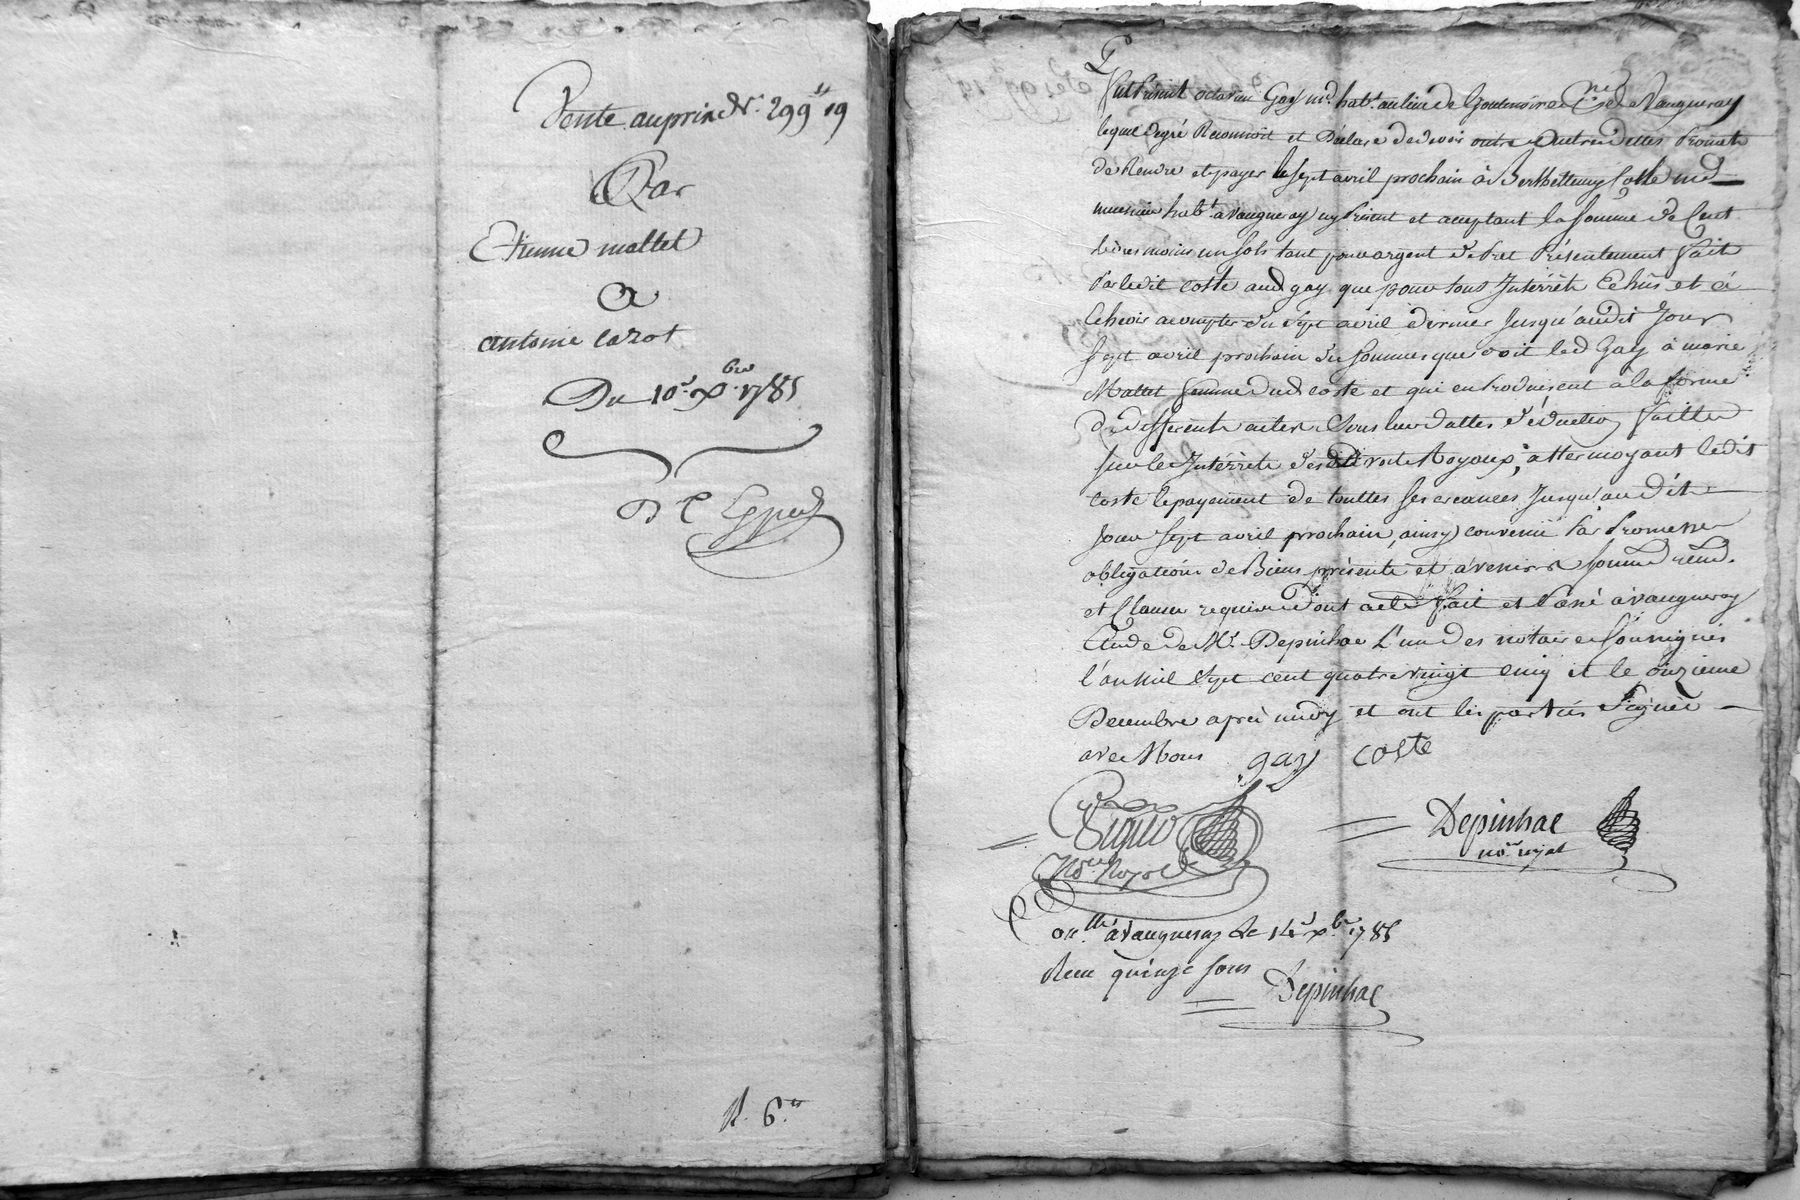 Vente au prix de 299 lt 19
Par
Etienne mallet
A
antoine cazot
Du 10e Xbre 1785
N. 6
Fut Présent octavien Gay md. habt. au lieu de Goutenoire Cne de Vaugneray
lequel de gré Reconnoit et Déclare devoir outre Dautres dettes Promet
de Rendre et payer le sept avril prochain à Berthellemy Coste md
meunier habt. a Vaugneray cy Présent et acceptant la somme de Cent
livres moins un sols tant pour argent de Pret Présentement Fait
Par ledit coste aud gay que pour tous Intérêts Echûs et à
Echeoir a compter du sept avril dernier Jusqu'audit Jour
sept avril prochain des sommes que doit led Gay à marie
Mallet femme dud coste et qui en Produisent a la forme
De differents actes sous leur dattes déduction Faitte
sur les Intérêts des droits Royaux, attermoyant ledit
coste le payement de touttes ses creances Jusqu'au dit
Jour sept avril prochain, ainsy convenu Par Promesse
obligation de Biens présents et avenir
et Clauses requises Dont acte Fait et Passé à vaugneray
Etude de Me. Depinhac L'un des notaires soussignés
l'an mil sept cent quatre vingt cinq et le onzieme
Decembre après midy et ont les parties signé
avec Nous gay coste
Depinhac
nore royal
Nore Royal
Conlle. à Vaugneray le 14e Xbre 1785
Reçu quinze sous
Depinhac